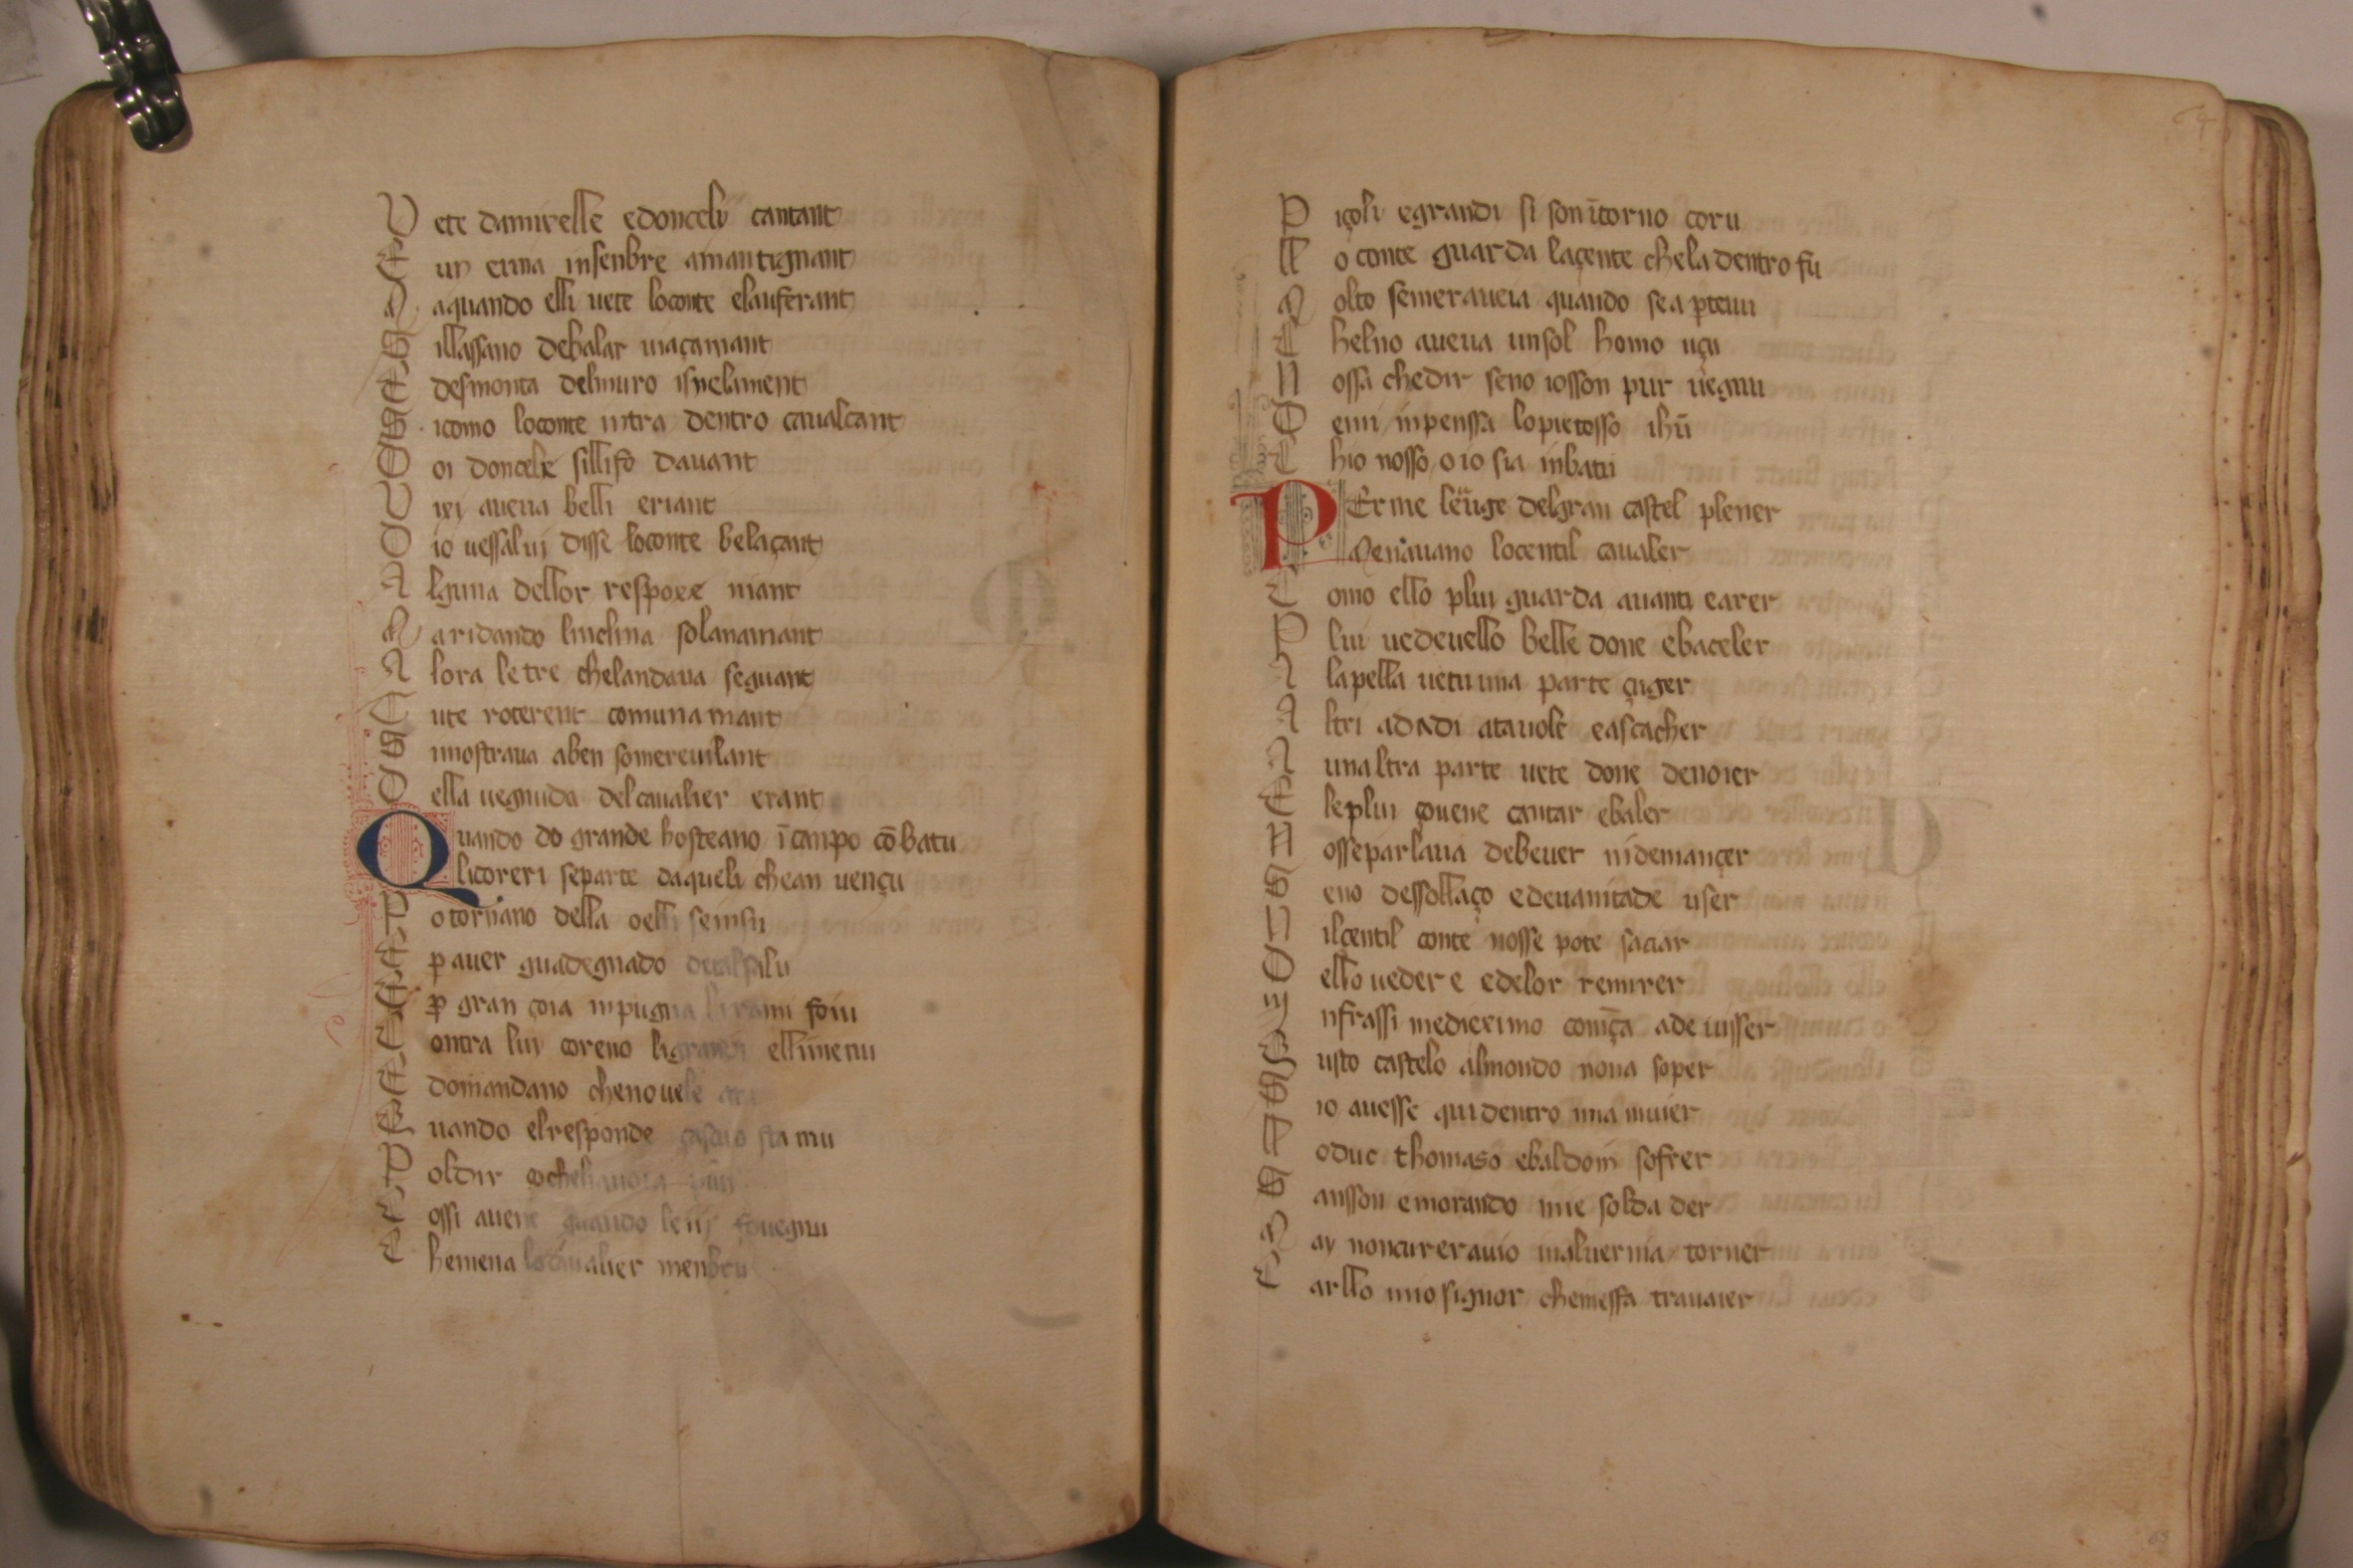 U ete damixelle e doncely cantant
E un cuna insenbre amantignant
M aquando elli uete loconte elauferant
S illassano debalar maçamant
E desmonta delmuro isnelament
S icomo loconte intra dentro caualcant
D oi doncele sillifo dauant
U ixi auena belli eriant
D io uessalui disse loconte belaçant
A lguna dellor respoxe niant
M aridando linclina solanamant
A lora letre chelandaua seguant
T ute roterent comunamant
S imostraua aben somereuilant
D ella uegnuda delcaualier erant
Quando do grande hosteano ī canpo cōbatu
E licoreri separte daqueli chean uençu
P o tornano della oelli seinsu
E p auer guadegnado
E p gran çoia inpugna foiu
C ontra lui coreno elliīnenu
E domandano chenouele
Q uando elresponde sta mu
P oldir
C ossi auen quando
C hemena menbru
64
P içoli egrandi si son ītorno coru
L o conte guarda laçente cheladentro fu
M olto semeraueia quando sea pteuu
C helno aueua unsol homo uçu
N ossa chedir seno iosson pur uegnu
D eini inpenssa lopietosso ihū
C hio nosso o io sia inbatu
PErme leuge delgran castel plener
Menauano locentil caualer
C omo ello plui guarda auanti earer
P lui uedeuello belle done ebaceler
A lapella uetu una parte çuger
A ltri adadi atauole eascacher
A unaltra parte uete done denoier
E leplui çouene cantar ebaler
N osseparlaua debeuer nidemançer
S eno dessollaço edeuanitade user
U ilçentil conte nosse pote saciar
D ello uedere edelor remirer
I nfrassi mediexmo comēça adeuisser
Q usto castelo almondo noua soper
S io auesse quidentro mia muier
E oduc thomaso ebaldoin sofrer
S ansson emorando mie soldader
M ay noncureraujo inaluernia torner
C arllo miosignor chemessa trauaier
65